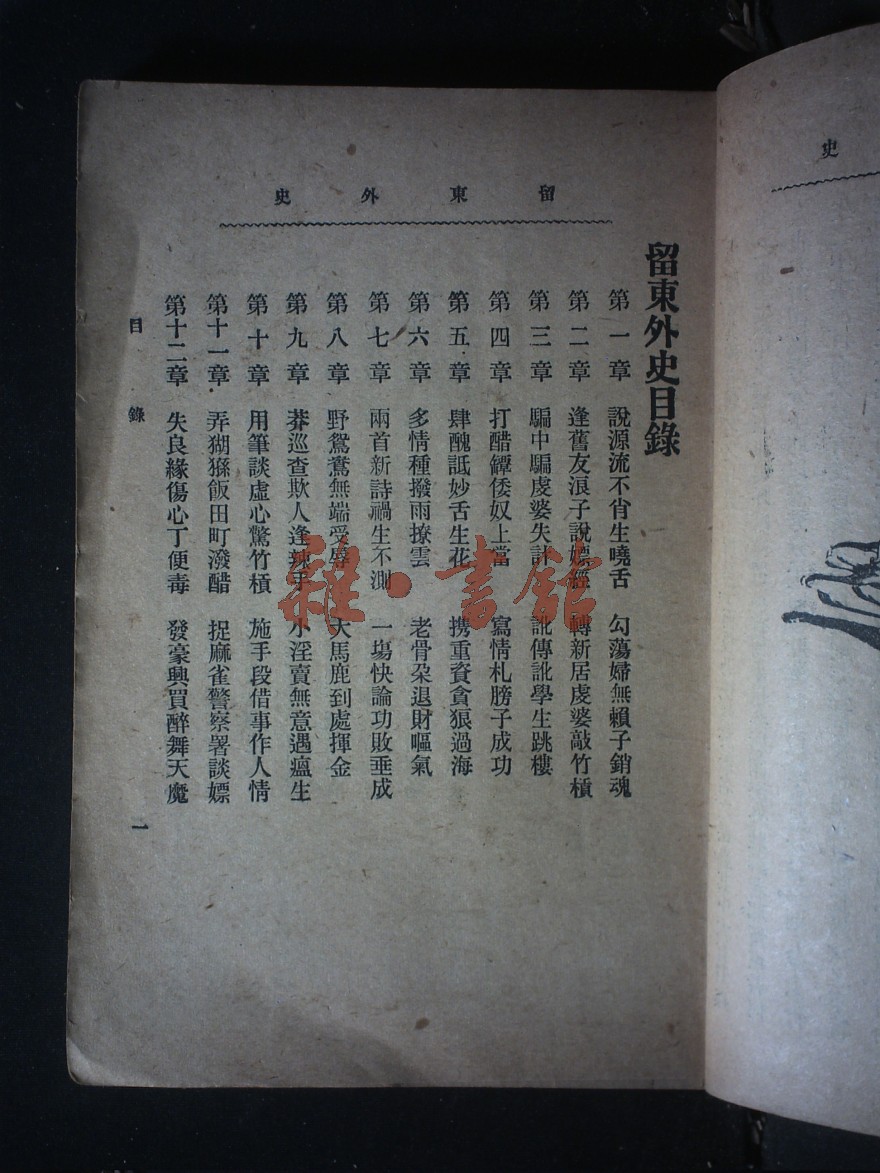 留東外史
留東外史目錄
第一章 說源流不肖生嘵舌 勾蕩婦無賴子銷魂
第二章 逢舊友浪子說嫖經 轉新居虔婆敲竹槓
第三章 騙中騙虔婆失計 訛傳訛學生跳樓
第四章 打醋罈倭奴上當 寫情札膀子成功
第五章 肆醜詆妙舌生花 携重資貪狼過海
第六章 多情種撥雨撩雲 老骨朶退財嘔氣
第七章 兩首新詩禍生不測 一塲快論功敗垂成
第八章 野鴛鴦無端受辱 大馬鹿到處揮金
第九章 莽巡查欺人逢辣手 小淫賣無意遇瘟生
第十章 用筆談虛心驚竹槓 施手段借事作人情
第十一章 弄猢猻飯田町潑醋 捉麻雀警察署談嫖
第十二章 失良緣傷心丁便毒 發豪興買醉舞天魔
目錄 一
史
雜·書館